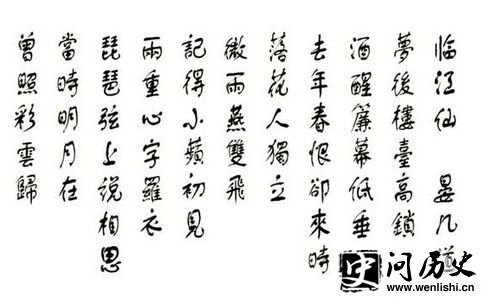 临江仙 晏几道
夢後樓臺高鎖
酒醒簾幕低垂
去年春恨卻來時
落花人獨立
微雨燕雙飛
記得小蘋初見
兩重心字羅衣
琵琶弦上说相思
當時明月在
曾照彩雲歸
史问历史
www.wenlishi.cn